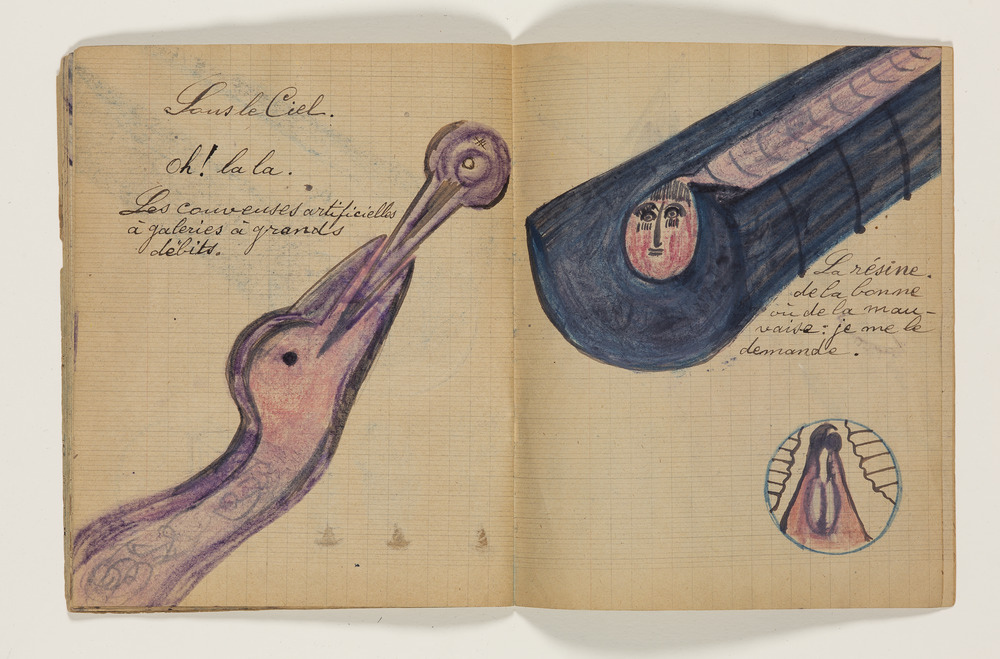 Sous le Ciel.
Oh! la la.
Les couveuses artificielles
à galeries à grands
débits.
La résine.
de la bonne
ou de la mau-
vaise: je me le
demande.